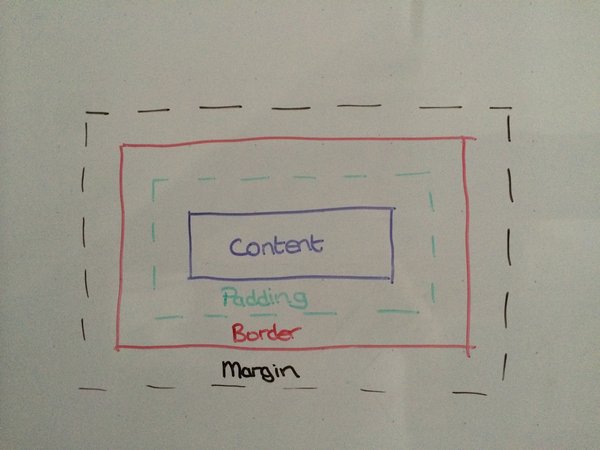 Content
Padding
Border
Margin